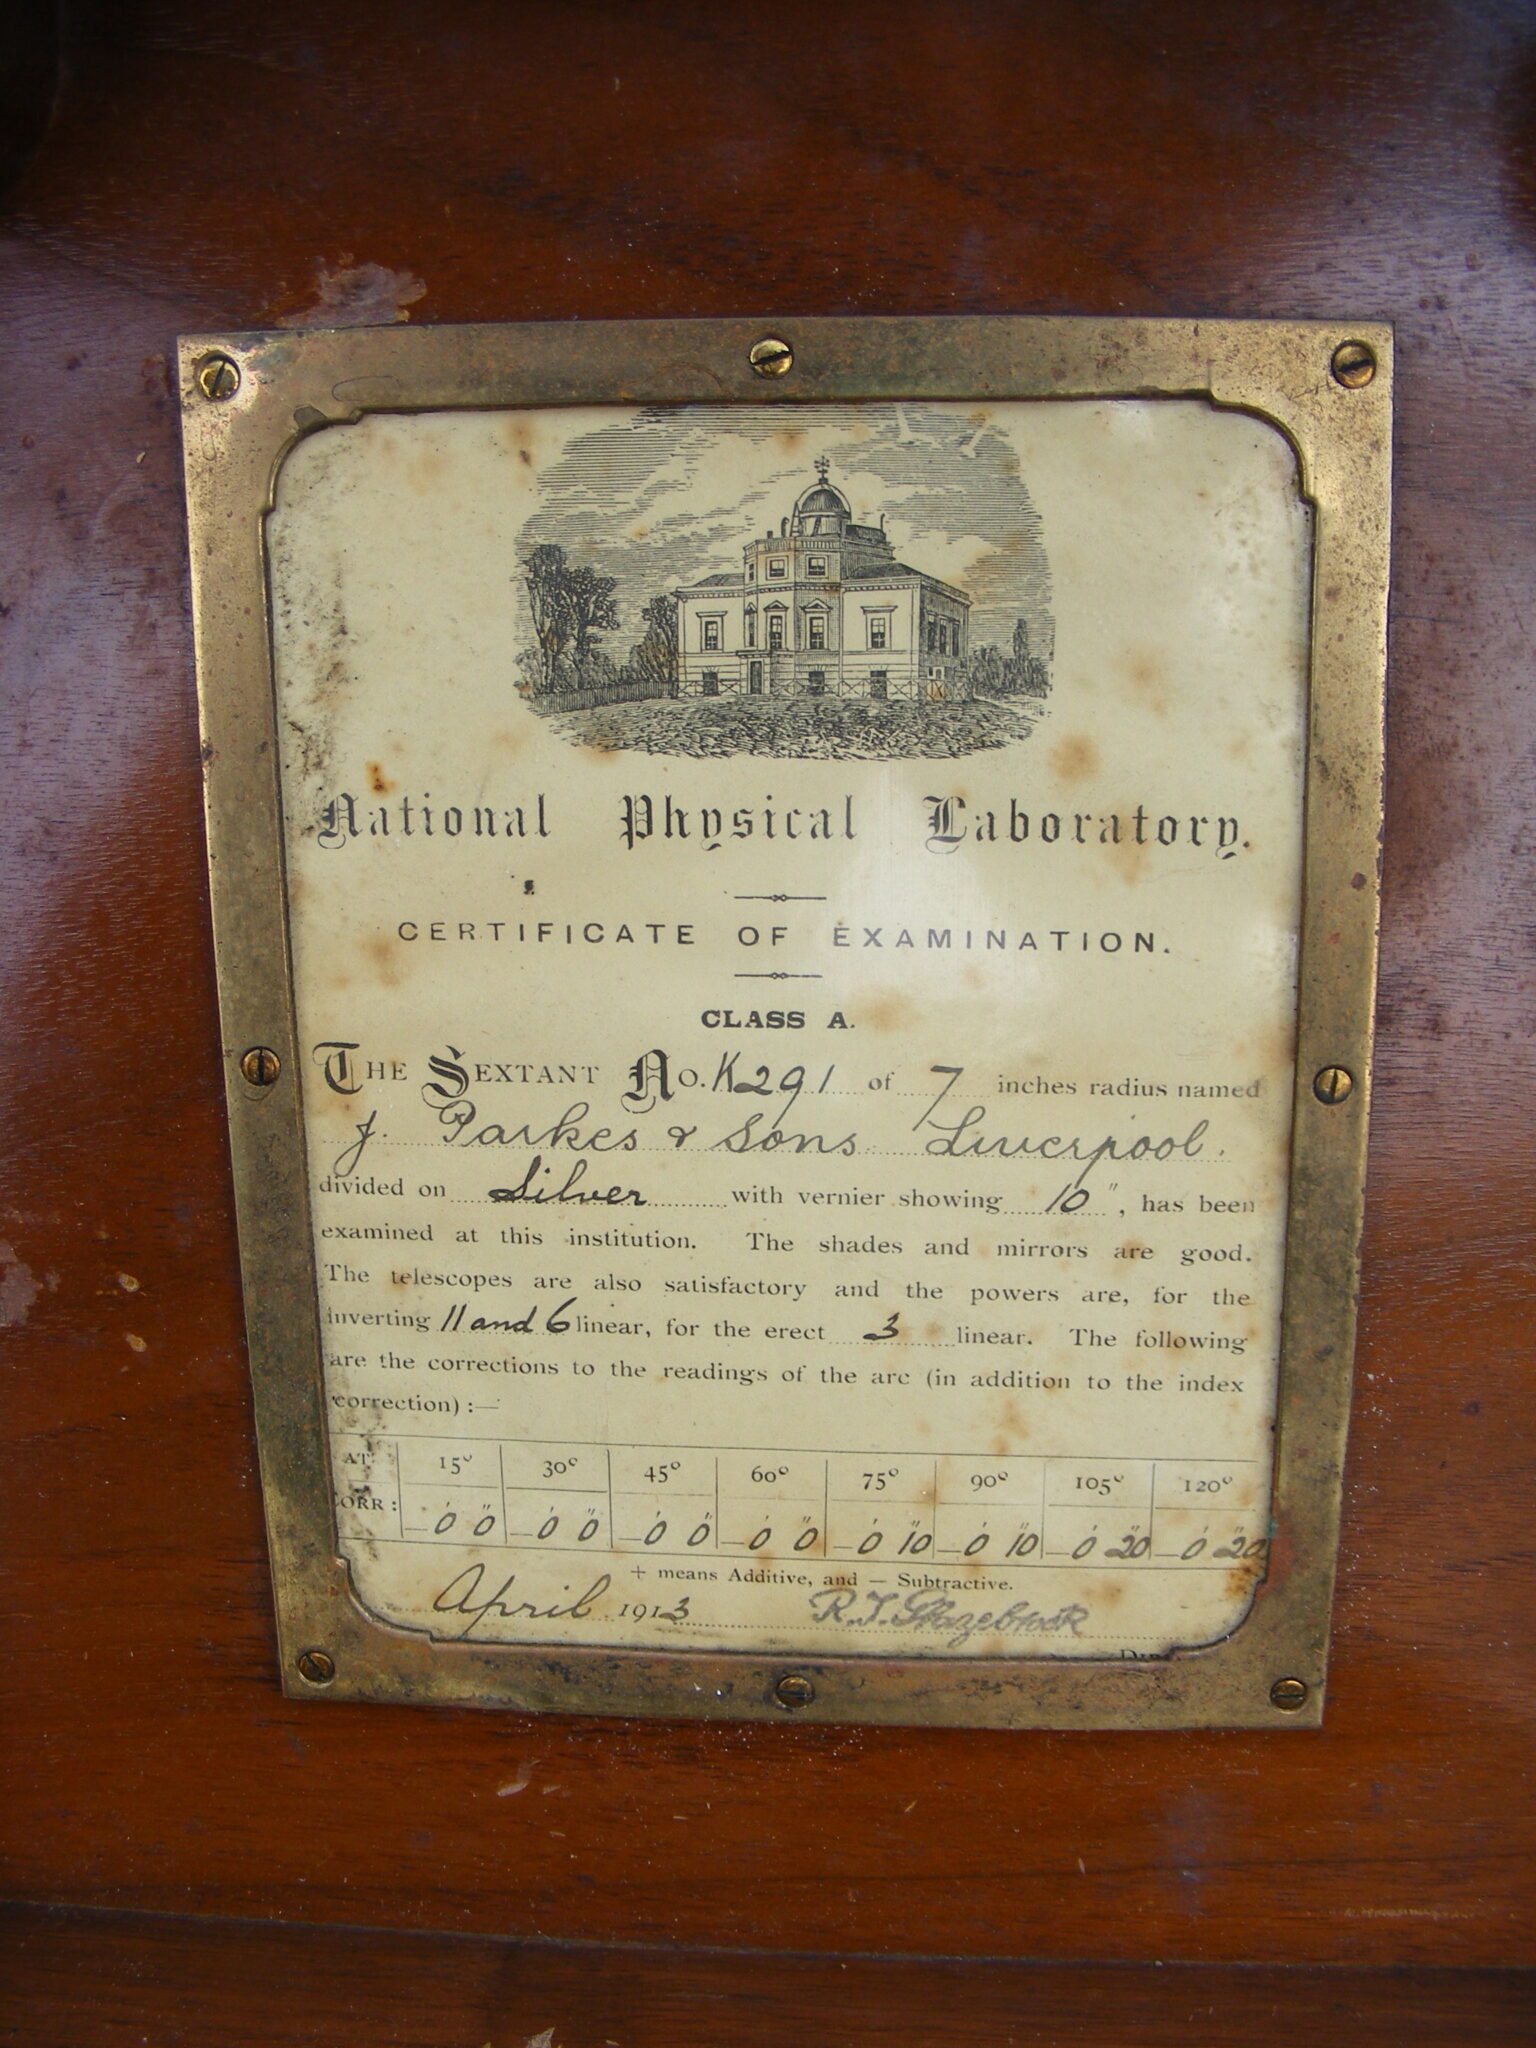 National Physical Laboratory.
CERTIFICATE OF EXAMINATION.
CLASS A.
THE SEXTANT No. K291 of 7 inches radius named
J. Parkes & Sons Liverpool.
divided on Silver with vernier showing 10", has been
examined at this institution. The shades and mirrors are good.
The telescopes are also satisfactory and the powers are, for the
inverting 11 and 6 linear, for the erect 3 linear. The following
are the corrections to the readings of the arc (in addition to the index
correction) :—
AT 15° 30° 45° 60° 75° 90° 105° 120°
CORR : —0' 0" —0' 0" —0' 0" —0' 0" —0' 10" —0' 10" —0' 20" —0' 20"
+ means Additive, and — Subtractive.
April 1913 R.T. Glazebrook